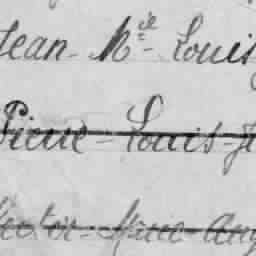 Jean - Mie - Louis
Pierre - Louis - J
Hector - Marie - Ang